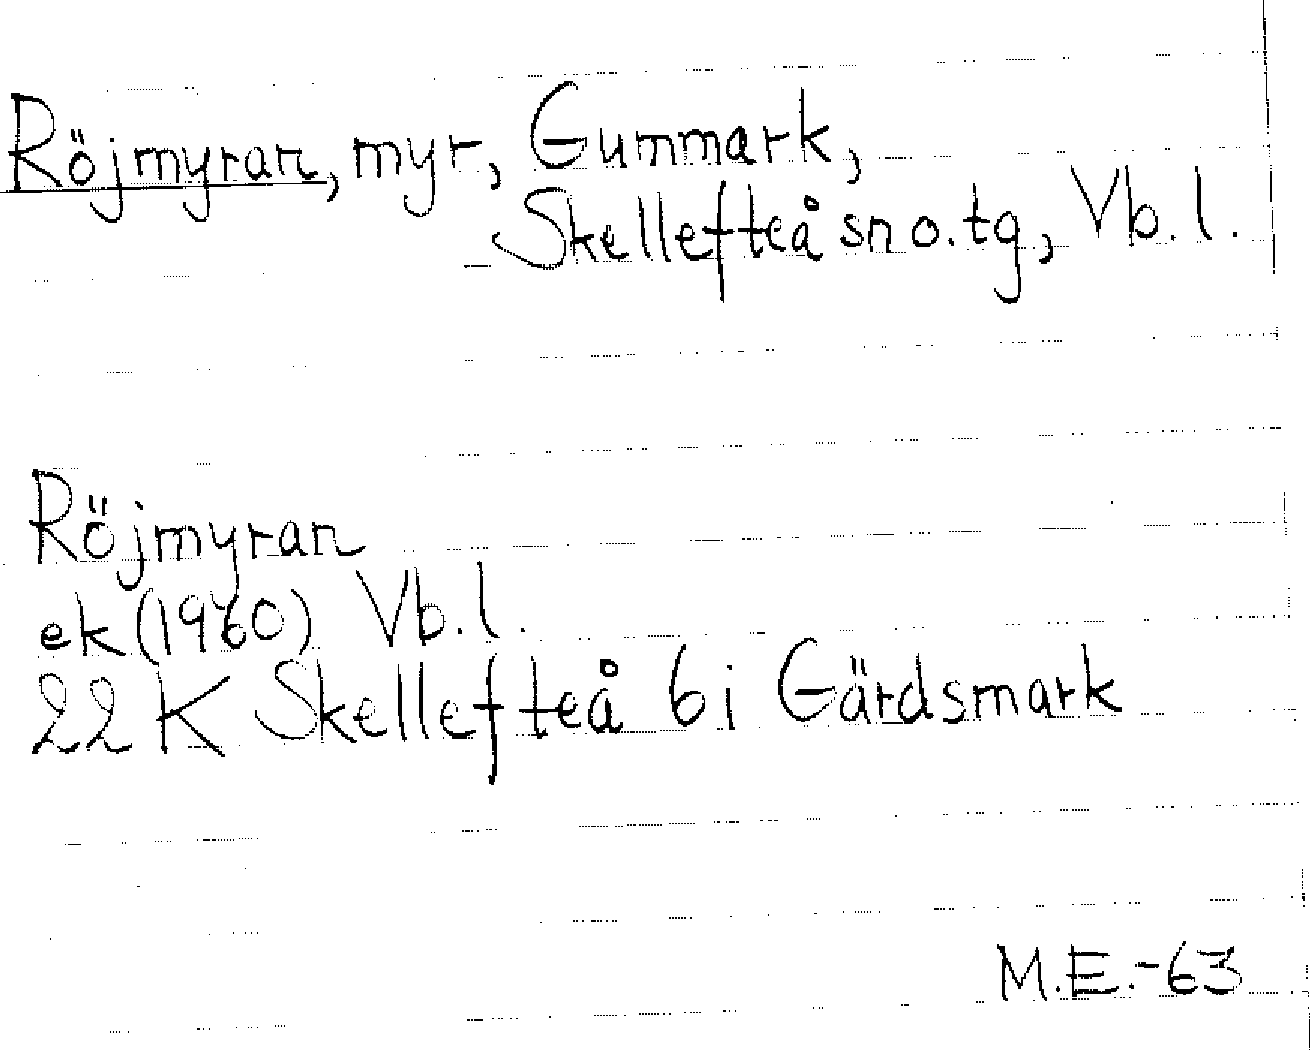 Röjmyran, myr, Gummark,
Skellefteå sn o. tg, Vb. l.
Röjmyran
ek (1960) Vb. l.
22 K Skellefteå 6 i Gärdsmark
M.E.-63